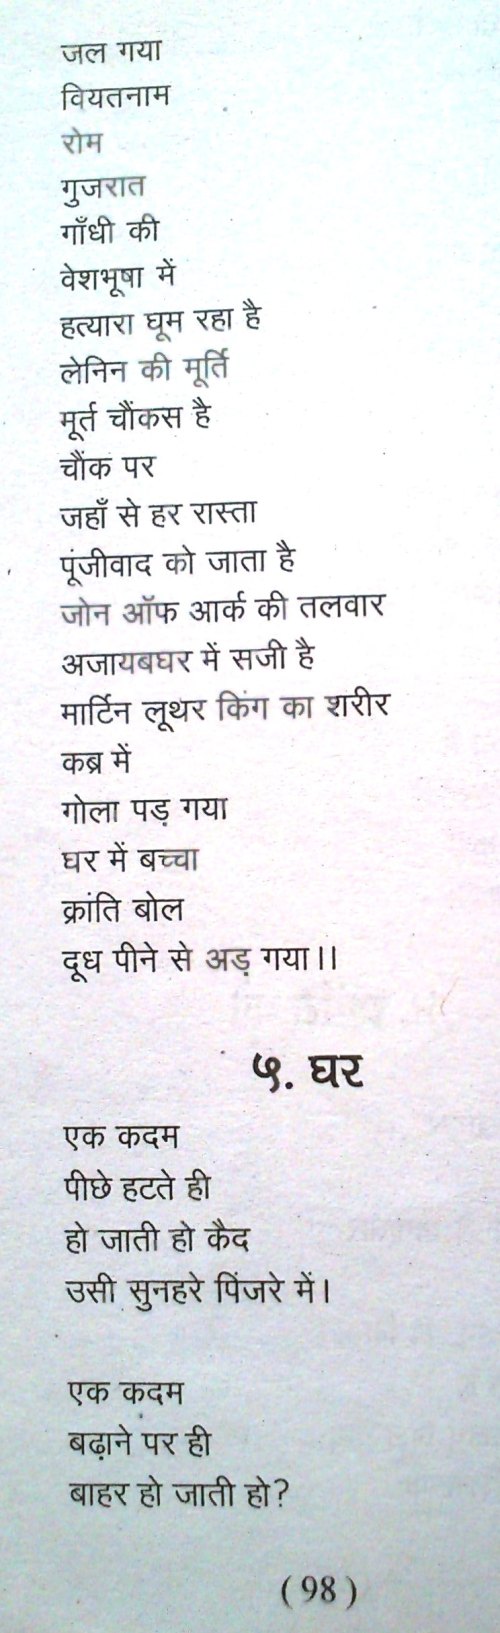 जल गया
वियतनाम
रोम
गुजरात
गाँधी की
वेशभूषा में
हत्यारा घूम रहा है
लेनिन की मूर्ति
मूर्त चौंकस है
चौंक पर
जहाँ से हर रास्ता
पूंजीवाद को जाता है
जोन ऑफ आर्क की तलवार
अजायबघर में सजी है
मार्टिन लूथर किंग का शरीर
कब्र में
गोला पड़ गया
घर में बच्चा
क्रांति बोल
दूध पीने से अड़ गया।।
५. घर
एक कदम
पीछे हटते ही
हो जाती हो कैद
उसी सुनहरे पिंजरे में।
एक कदम
बढ़ाने पर ही
बाहर हो जाती हो?
( 98 )